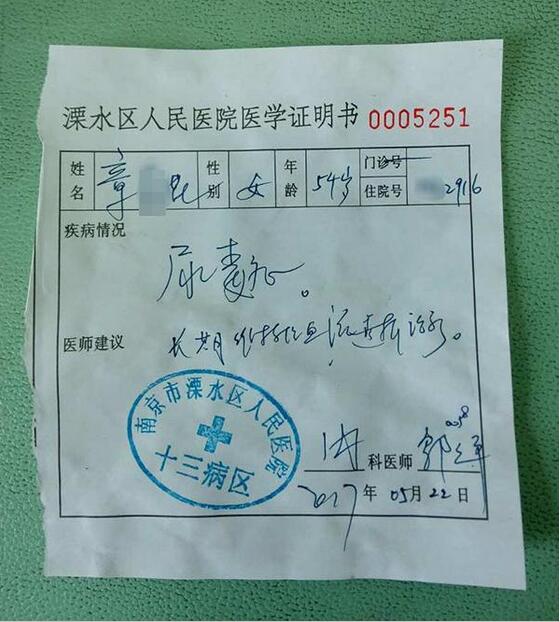 溧水区人民医院医学证明书 0005251
姓名 章 性别 女 年龄 54岁 门诊号 住院号 2916
疾病情况
尿毒症。
医师建议 长期维持性血液透析治疗。
南京市溧水区人民医院
十三病区
科医师 郭
2017年05月22日